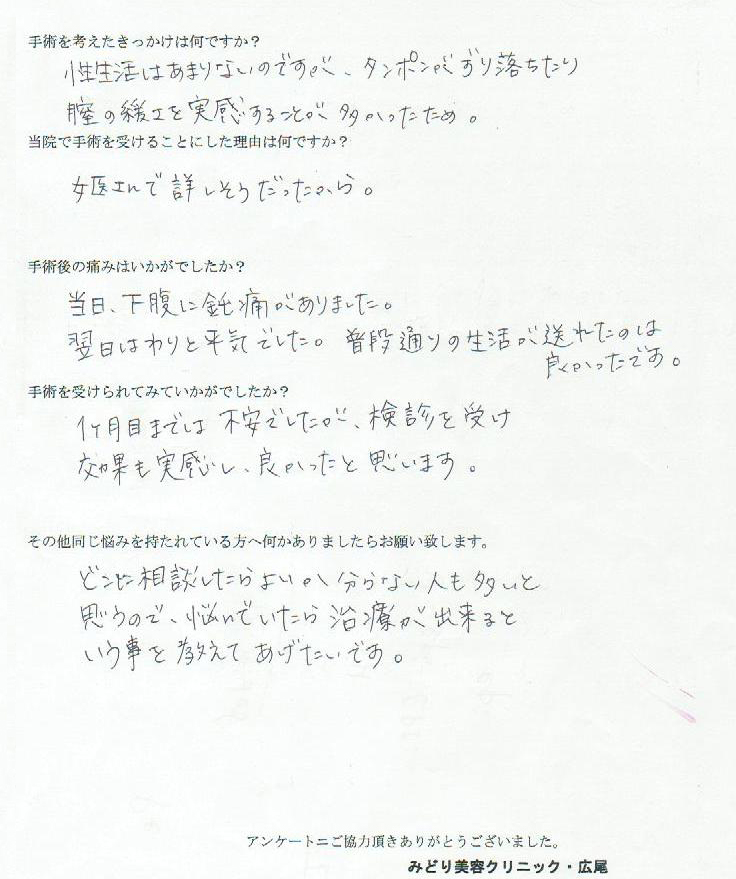 手術を考えたきっかけは何ですか？
性生活はあまりないのですが、タンポンがずり落ちたり
膣の緩さを実感することが多かったため。
当院で手術を受けることにした理由は何ですか？
女医さんで詳しそうだったから。
手術後の痛みはいかがでしたか？
当日、下腹に鈍痛がありました。
翌日はわりと平気でした。普段通りの生活が送れたのは
良かったです。
手術を受けられてみていかがでしたか？
1ヶ月目までは不安でしたが、検診を受け
効果も実感し、良かったと思います。
その他同じ悩みを持たれている方へ何かありましたらお願い致します。
どこに相談したらよいか分らない人も多いと
思うので、悩んでいたら治療が出来ると
いう事を教えてあげたいです。
アンケートニご協力頂きありがとうございました。
みどり美容クリニック・広尾